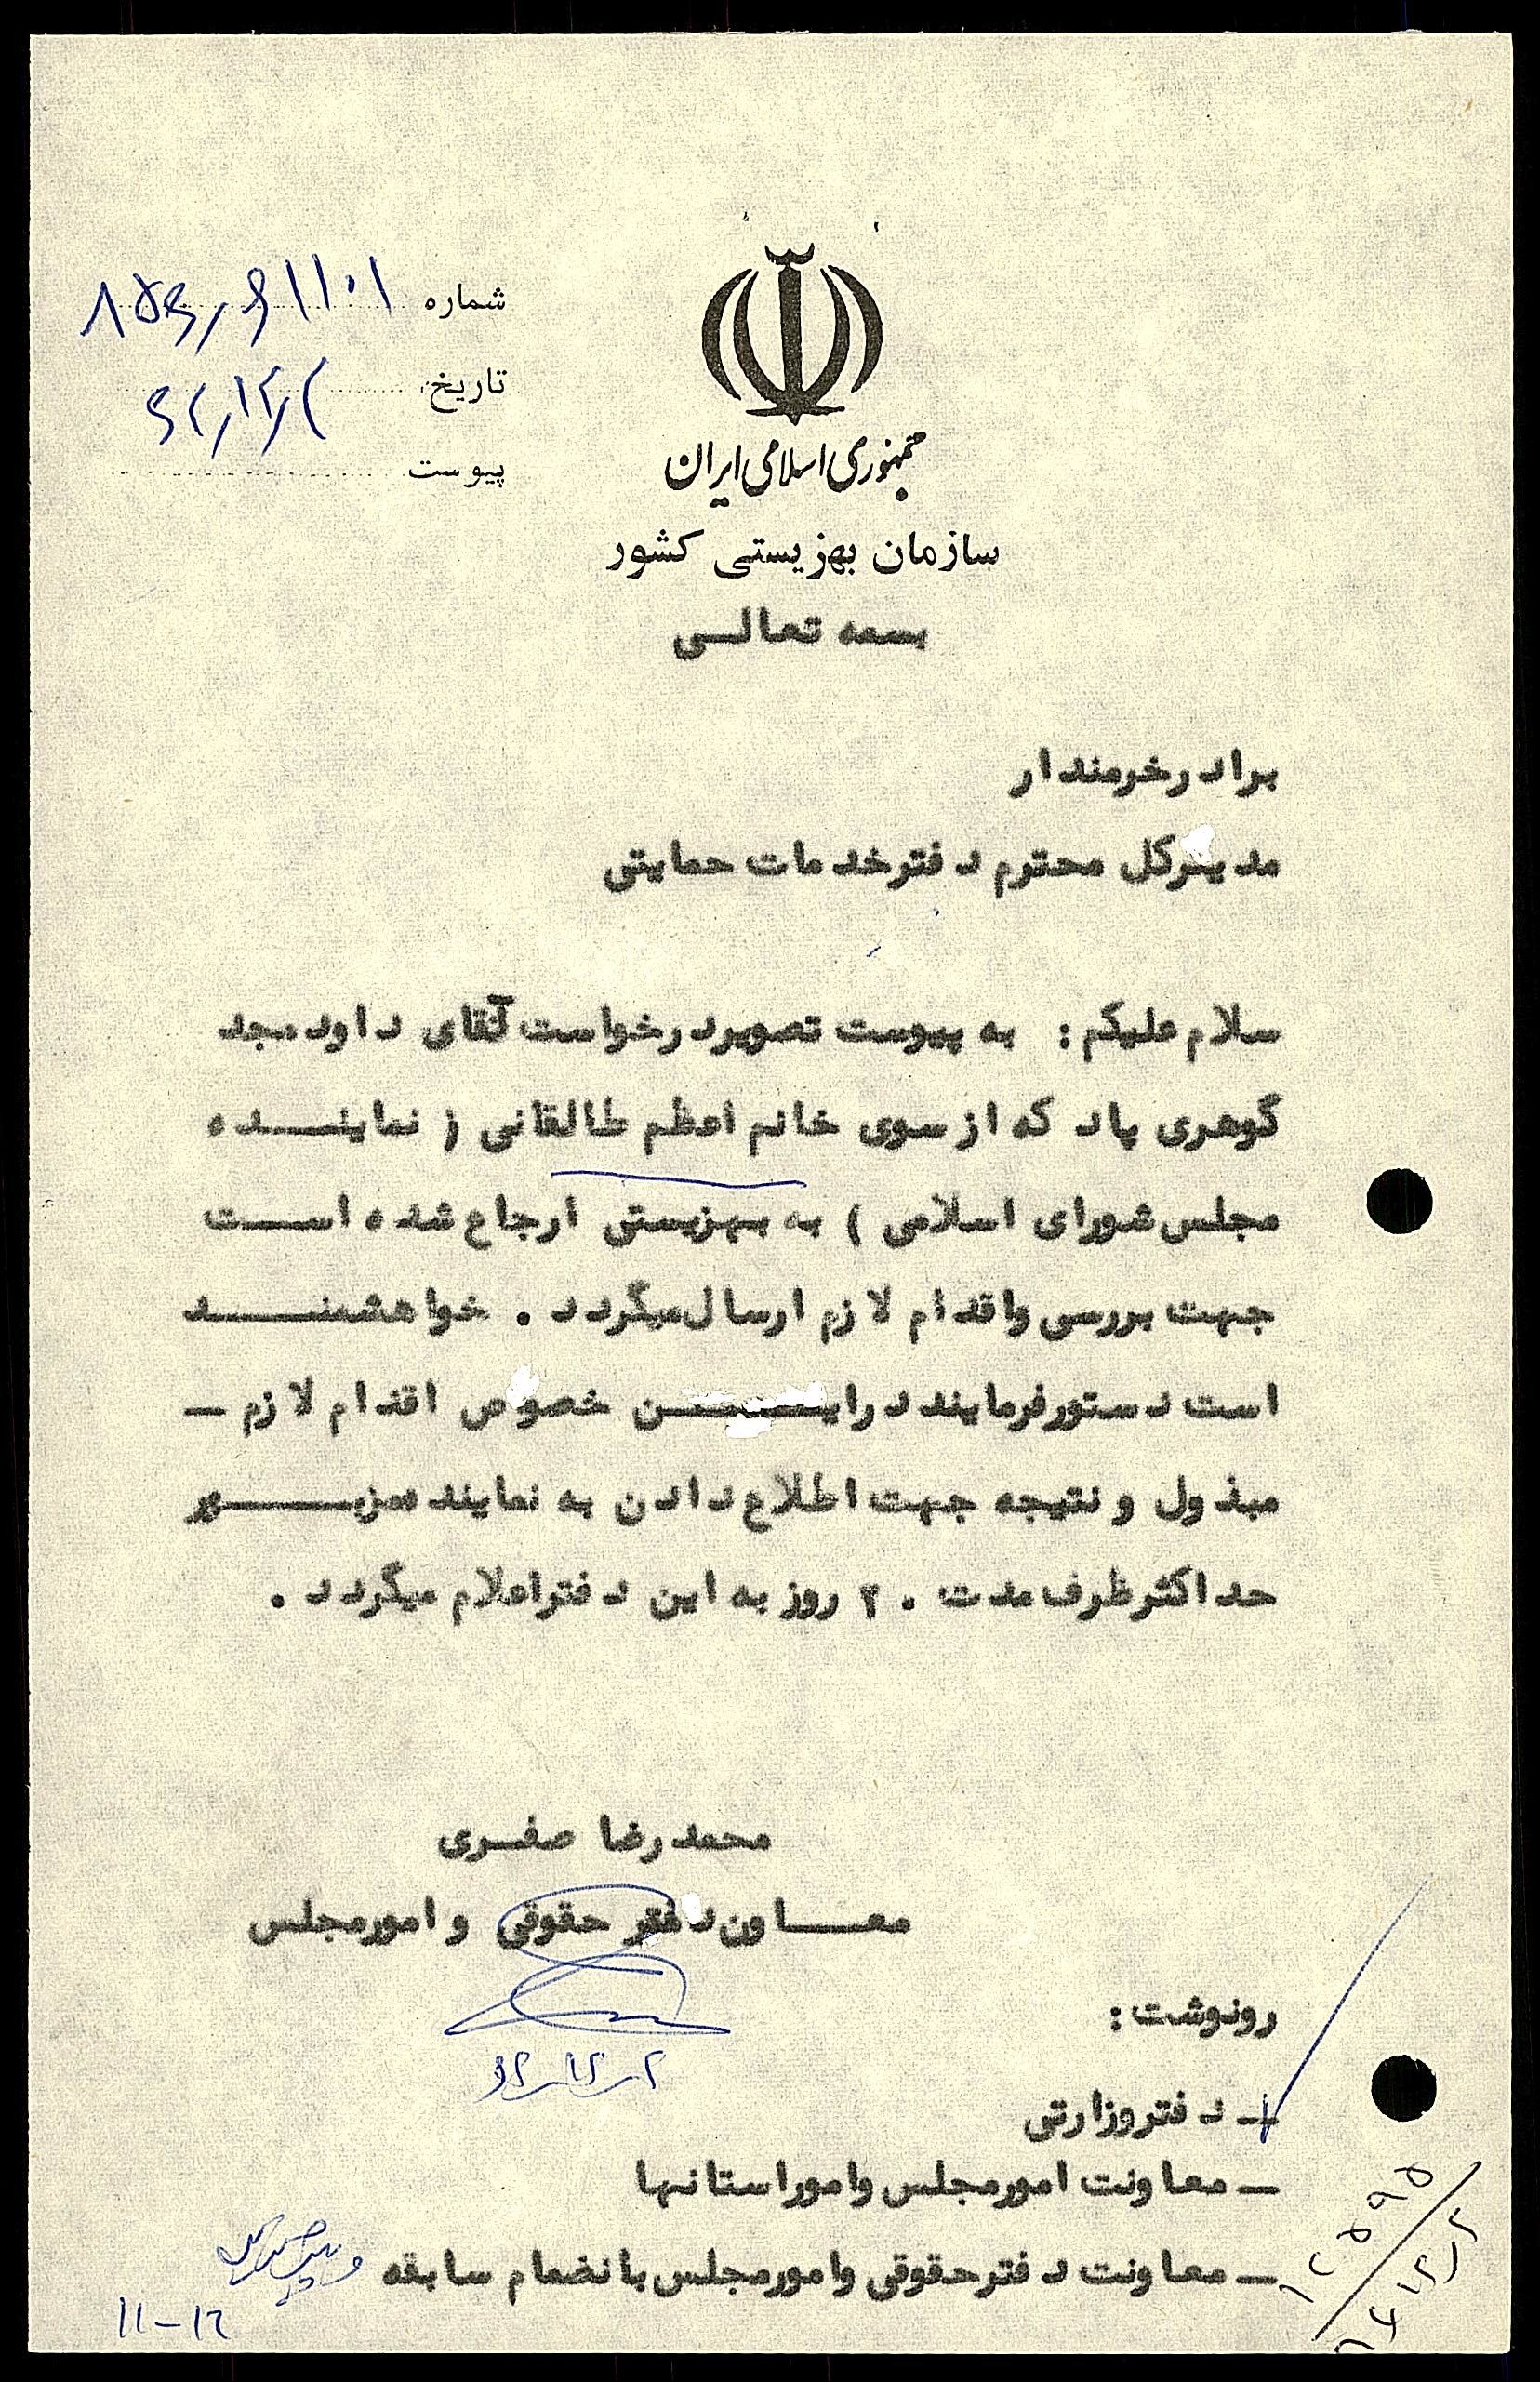 شماره
تاریخ
پیوست
جمهوری اسلامی ایران
سازمان بهزیستی کشور
بسمه تعالـی
برادر خرمندار
مدیرکل محترم دفتر خدمات حمایتی
سلام علیکم : به پیوست تصویر درخواست آقای داود مجد
گوهری پاد که از سوی خانم اعظم طالقانی ( نماینـــده
مجلس شورای اسلامی ) به بهزیستی ارجاع شده اســت
جهت بررسی و اقدام لازم ارسال میگردد . خواهشمنـــد
است دستور فرمایند در ایـــن خصوص اقدام لازم ـ
مبذول و نتیجه جهت اطلاع دادن به نماینده مزبـــور
حداکثر ظرف مدت ۲۰ روز به این دفتر اعلام میگردد .
محمد رضا صفـری
معـــاون دفتر حقوقی و امور مجلس
رونوشت :
ـ دفتر وزارتی
ـ معاونت امور مجلس و امور استانها
ـ معاونت دفتر حقوقی و امور مجلس با نضمام سابقه
۱۱-۱۲